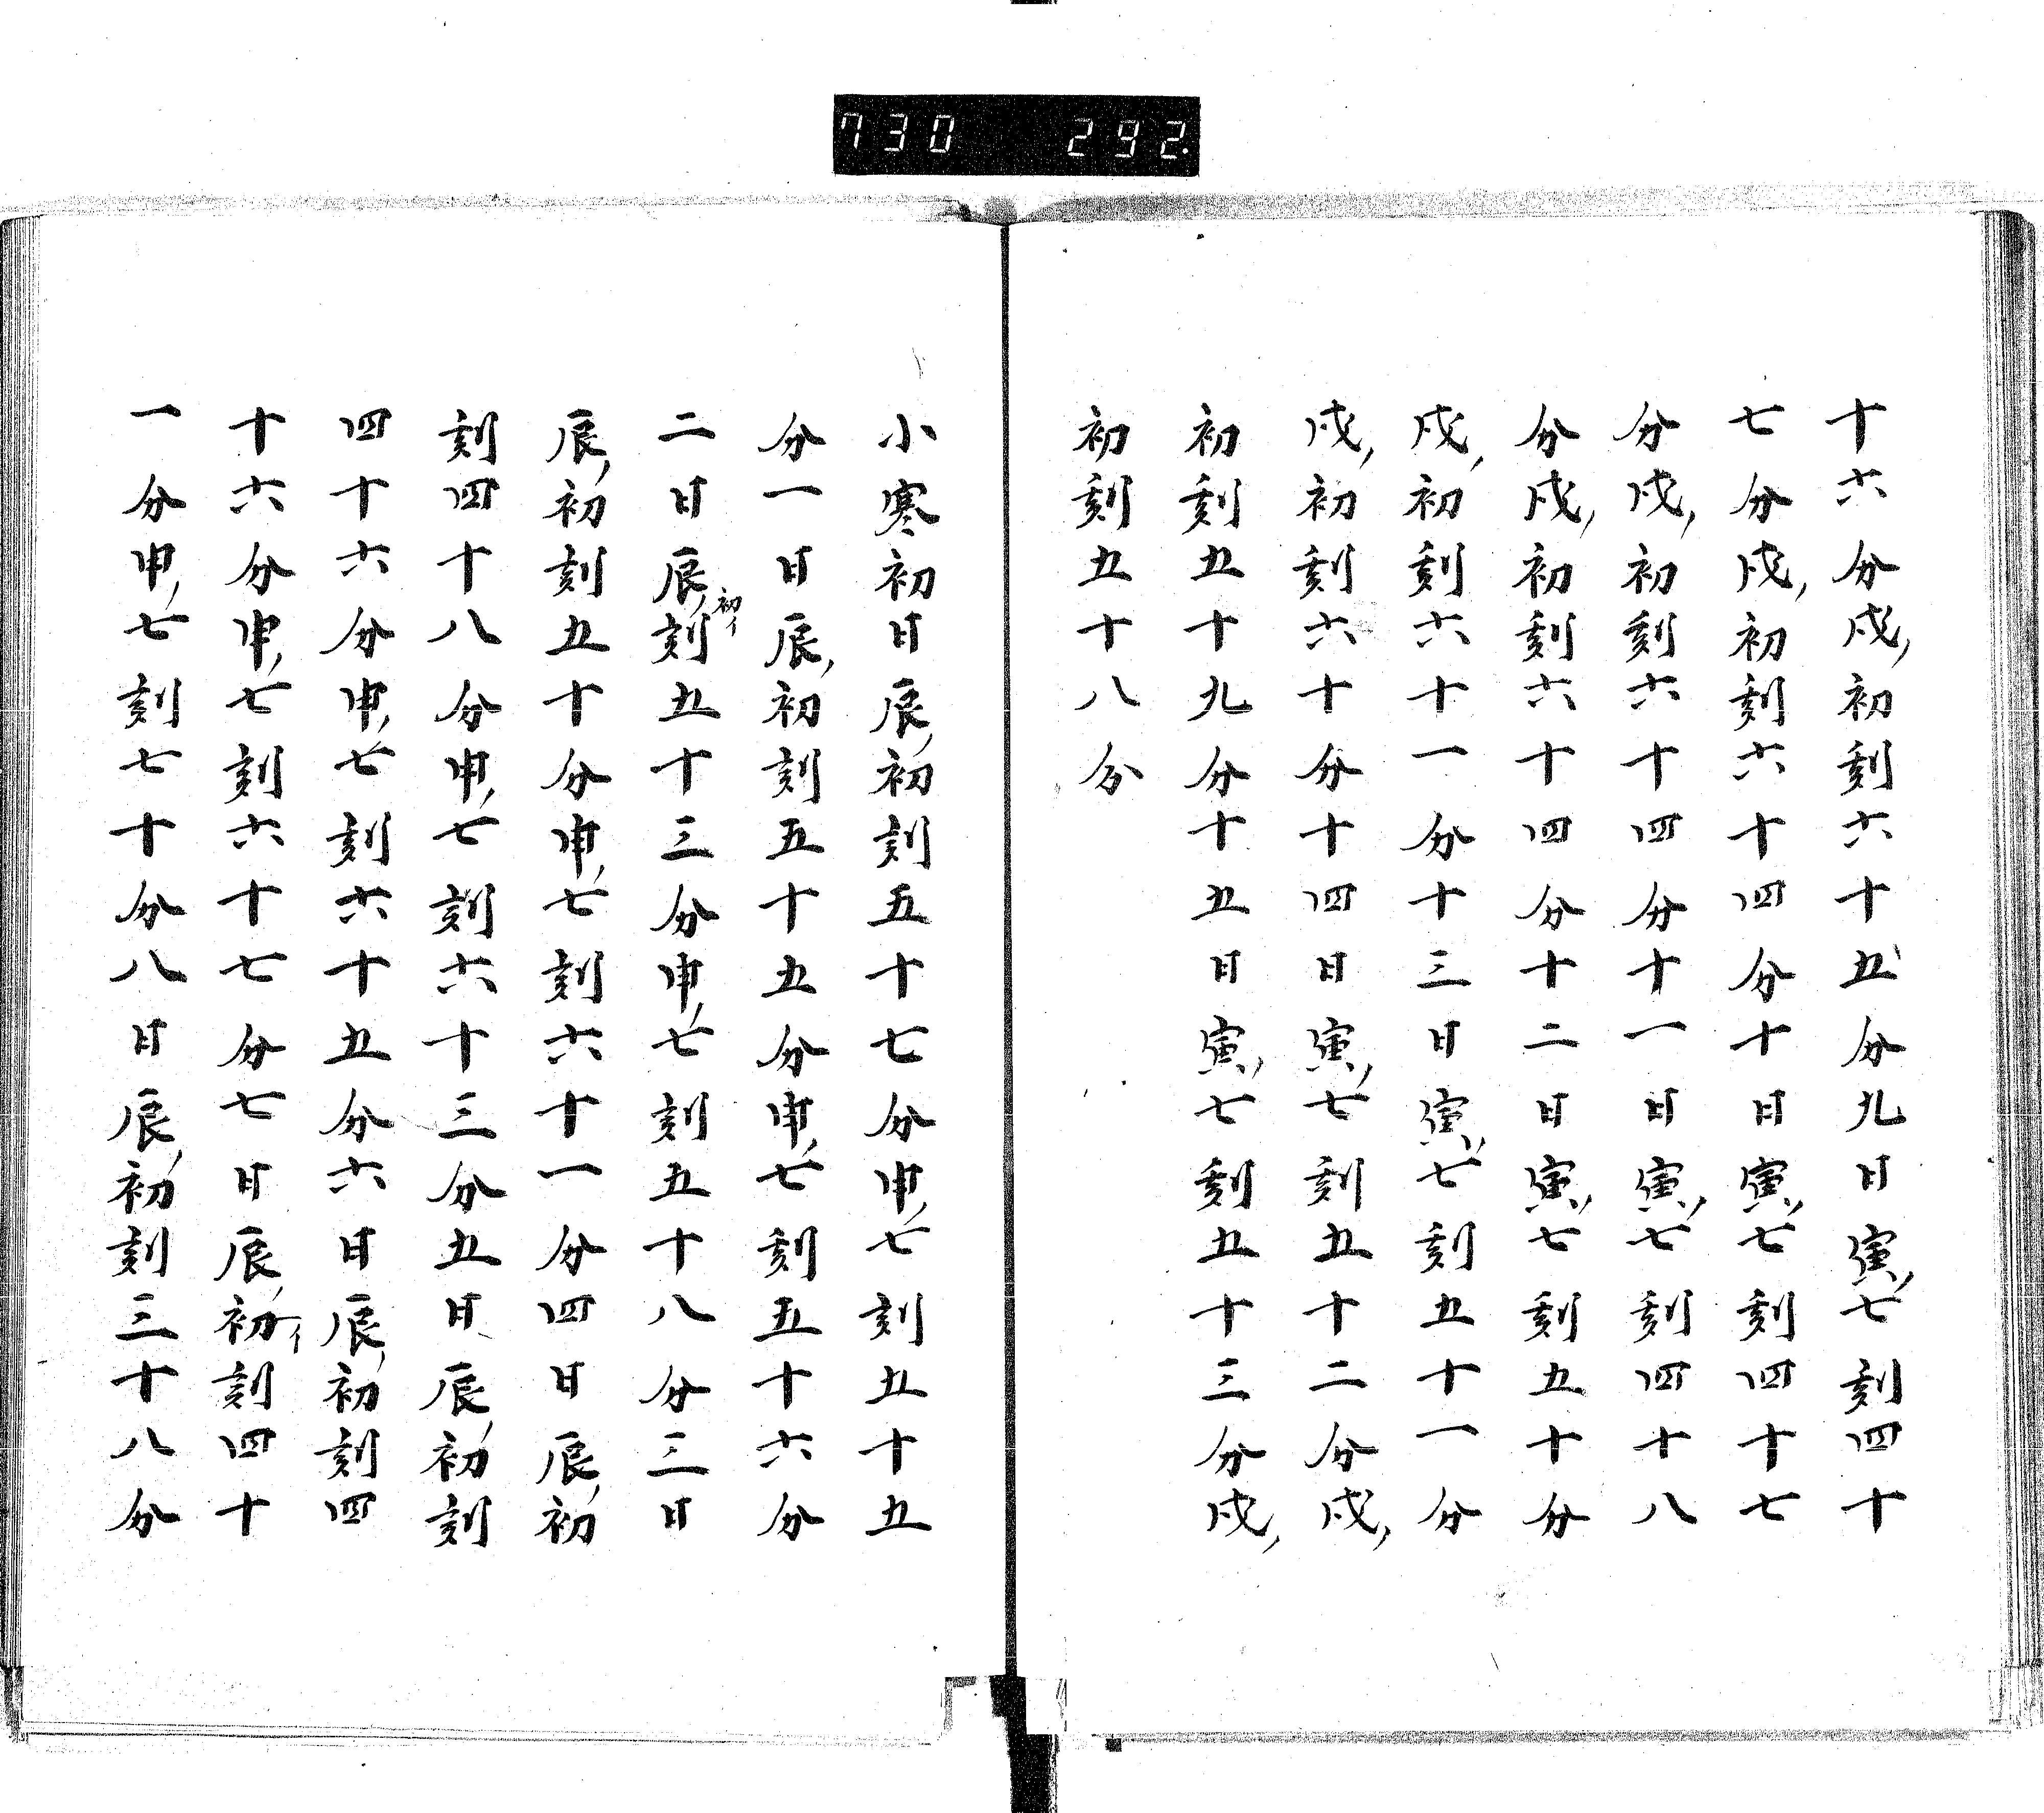 730 292.
十六分戌初刻六十五分九日寅七刻四十
七分戌初刻六十四分十日寅七刻四十七
分戌初刻六十四分十一日寅七刻四十八
分戌初刻六十四分十二日寅七刻五十分
戌初刻六十一分十三日寅七刻五十一分
戌初刻六十分十四日寅七刻五十二分戌
初刻五十九分十五日寅七刻五十三分戌
初刻五十八分
小寒初日辰初刻五十七分申七刻五十五
分一日辰初刻五十五分申七刻五十六分
二日辰刻五十三分申七刻五十八分三日
初イ
辰初刻五十分申七刻六十一分四日辰初
刻四十八分申七刻六十三分五日辰初刻
四十六分申七刻六十五分六日辰初刻四
十六分申七刻六十七分七日辰初刻四十
一イ
一分申七刻七十分八日辰初刻三十八分